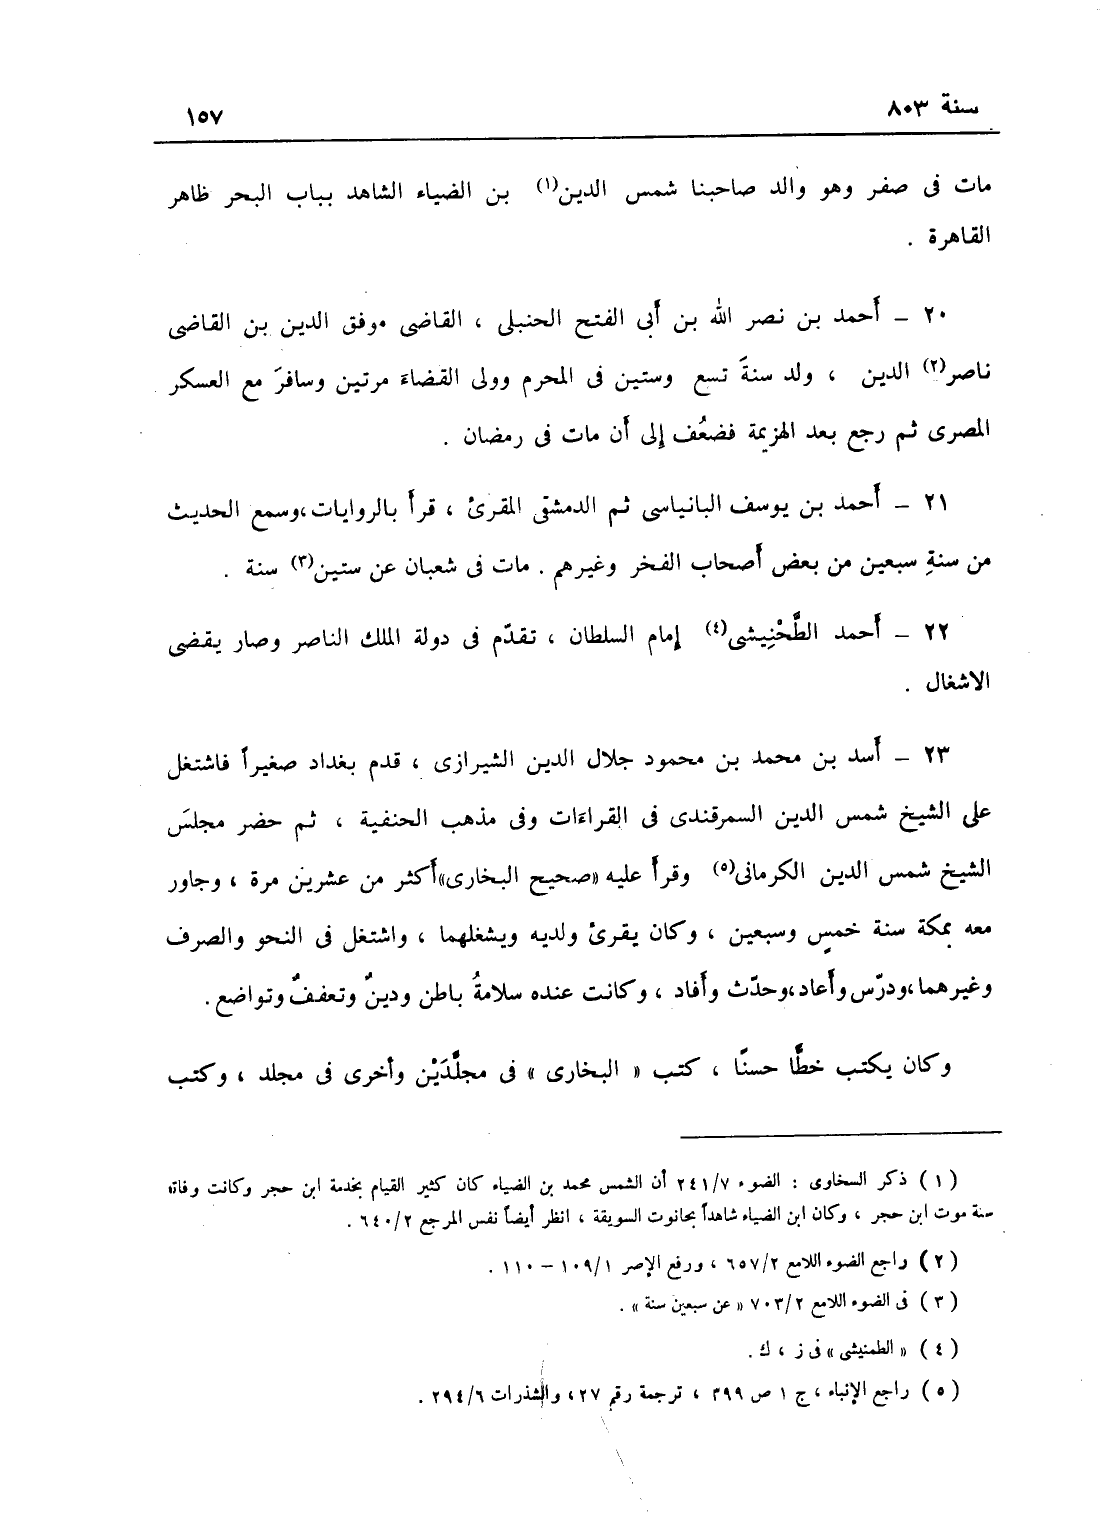 سنة ٨٠٣
١٥٧
مات فى صفر وهو والد صاحبنا شمس الدين(١) بن الضياء الشاهد بباب البحر ظاهر
القاهرة .
٢٠ – أَحمد بن نصر الله بن أَبى الفتح الحنبلى ، القاضى موفق الدين بن القاضى
ناصر(٢) الدين ، ولد سنةَ تسع وستين فى المحرم وولى القضاءَ مرتين وسافرَ مع العسكر
المصرى ثم رجع بعد الهزيمة فضعُف إِلى أَن مات فى رمضان .
٢١ – أَحمد بن يوسف البانياسى ثم الدمشقى المقرئ ، قرأَ بالروايات،وسمع الحديث
من سنةِ سبعين من بعض أَصحاب الفخر وغيرهم . مات فى شعبان عن ستين(٣) سنة .
٢٢ – أَحمد الطَّحْنِيشى(٤) إِمام السلطان ، تقدّم فى دولة الملك الناصر وصار يقضى
الاشغال .
٢٣ – أَسد بن محمد بن محمود جلال الدين الشيرازى ، قدم بغداد صغيراً فاشتغل
على الشيخ شمس الدين السمرقندى فى القراءَات وفى مذهب الحنفية ، ثم حضر مجلسَ
الشيخ شمس الدين الكرمانى(٥) وقرأَ عليه «صحيح البخارى»أَكثر من عشرين مرة ، وجاور
معه بمكة سنة خمسٍ وسبعين ، وكان يقرئ ولديه ويشغلهما ، واشتغل فى النحو والصرف
وغيرهما،ودرّس وأَعاد،وحدّث وأَفاد ، وكانت عنده سلامةُ باطن ودينٌ وتعففٌ وتواضع .
وكان يكتب خطًّا حسنًا ، كتب « البخارى » فى مجلَّدَيْن وأخرى فى مجلد ، وكتب
(١) ذكر السخاوى : الضوء ٢٤١/٧ أن الشمس محمد بن الضياء كان كثير القيام بخدمة ابن حجر وكانت وفاته
سنة موت ابن حجر ، وكان ابن الضياء شاهداً بحانوت السويقة ، انظر أيضاً نفس المرجع ٦٤٠/٢ .
(٢) راجع الضوء اللامع ٦٥٧/٢ ، ورفع الإصر ١٠٩/١ – ١١٠ .
(٣) فى الضوء اللامع ٧٠٣/٢ « عن سبعين سنة » .
(٤) « الطمنيشى » فى ز ، ك .
(٥) راجع الإنباء ، ج ١ ص ٢٩٩ ، ترجمة رقم ٢٧ ، والشذرات ٢٩٤/٦ .